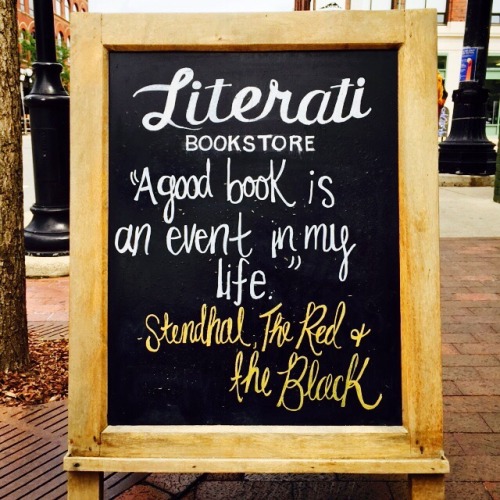 Literati
BOOKSTORE
"A good book is
an event in my
life."
Stendhal, The Red &
the Black